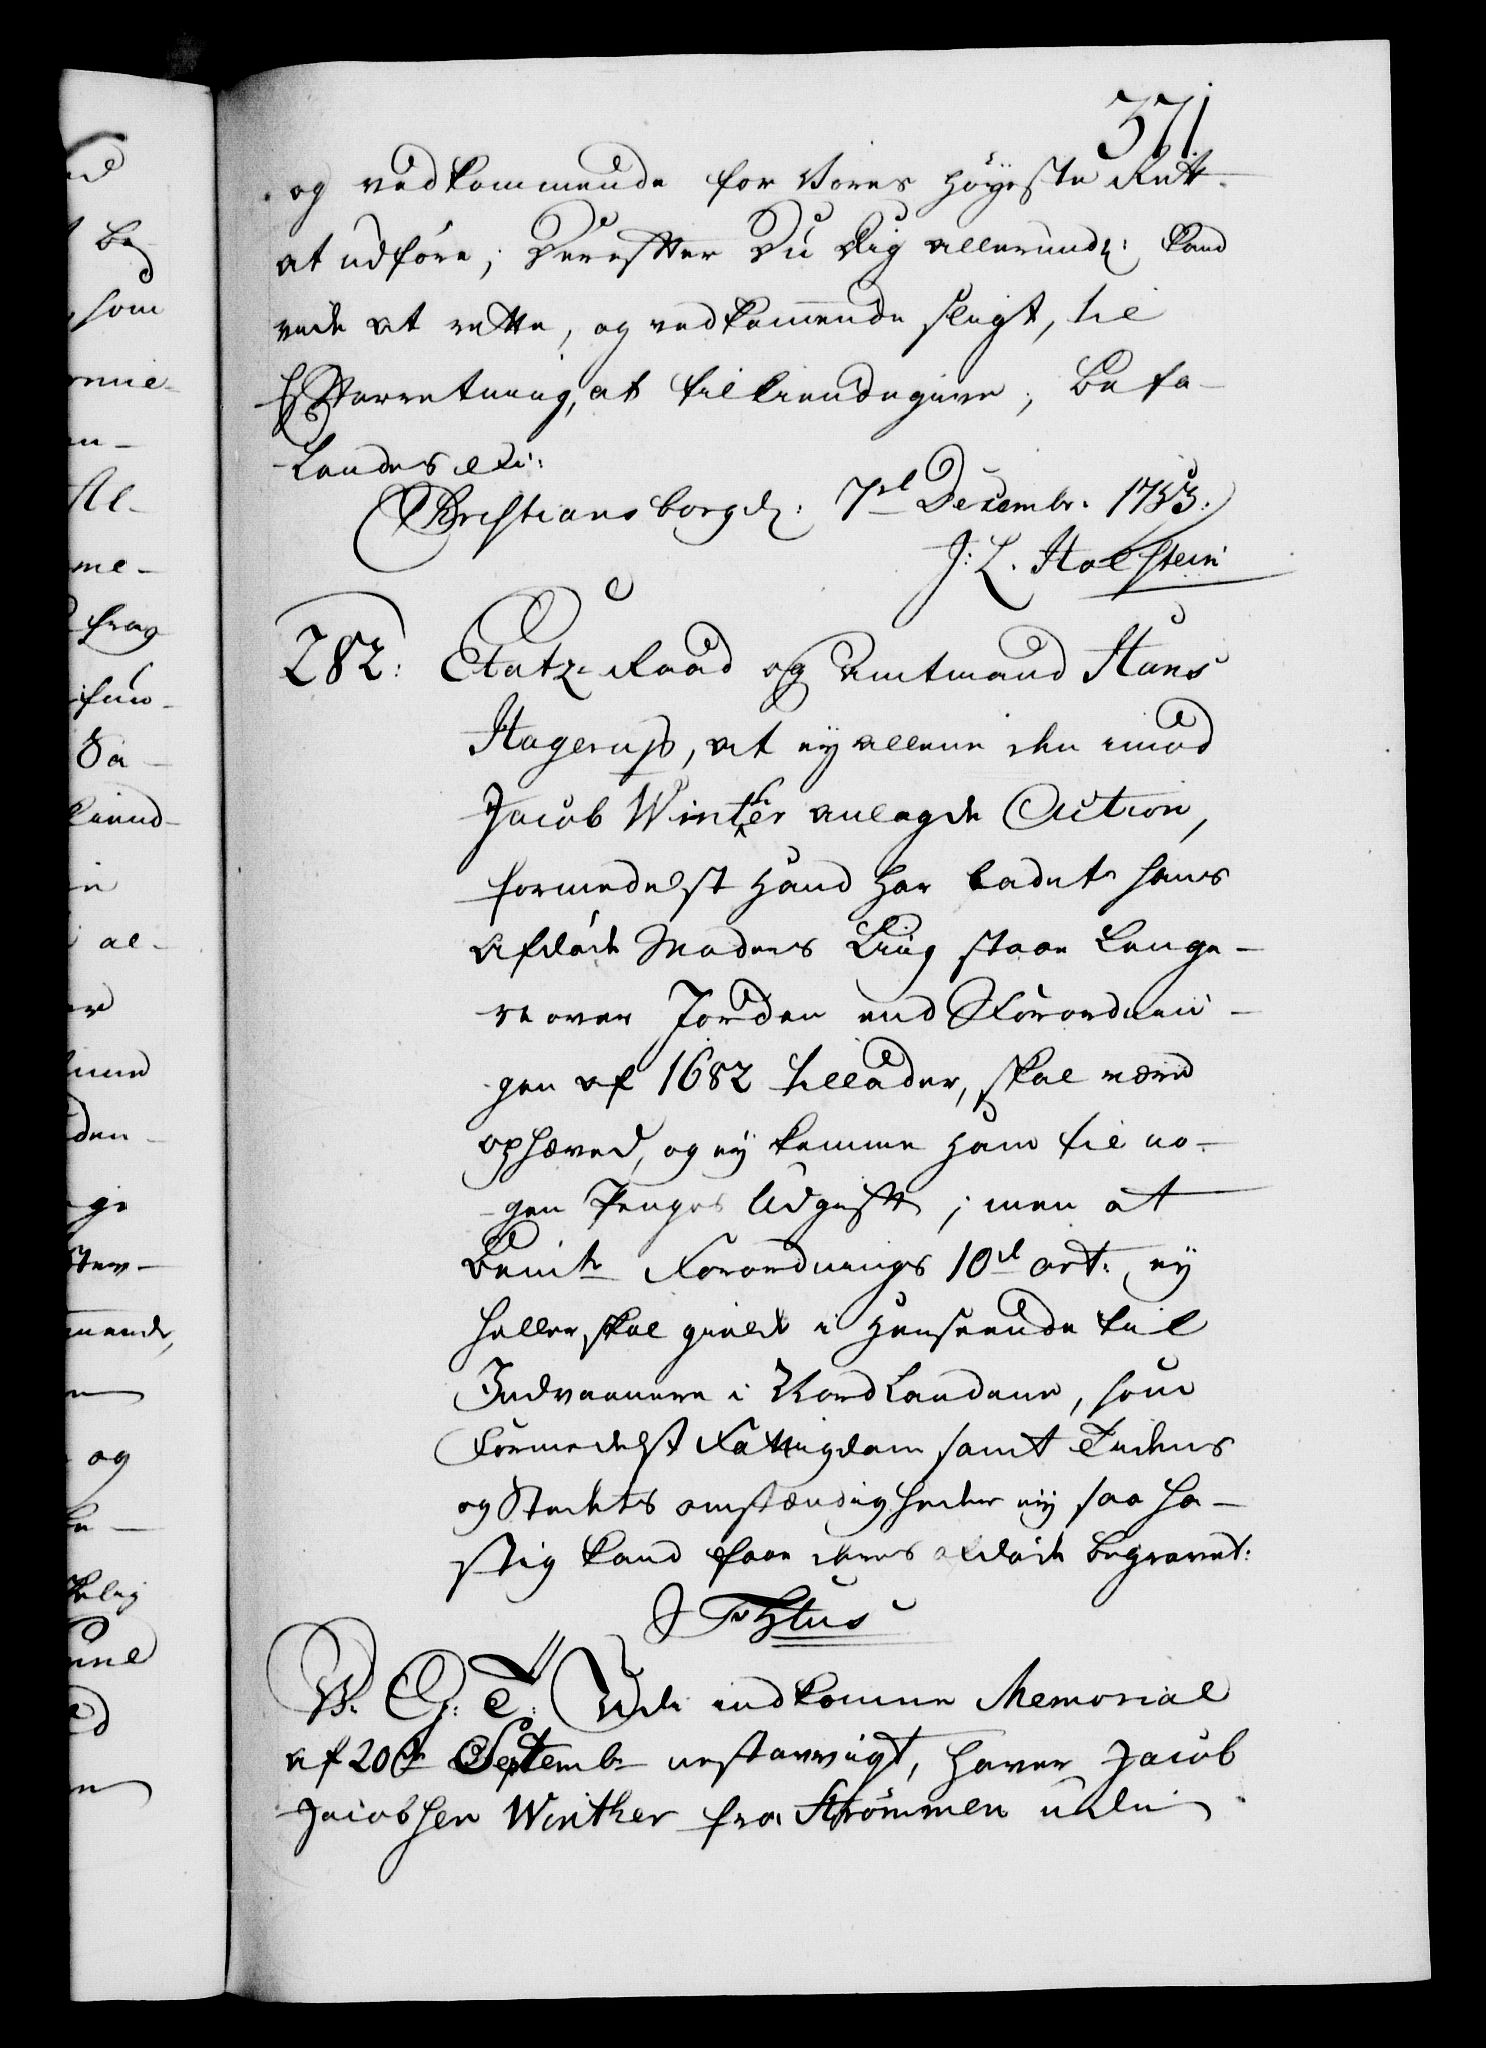 371
og vedkommende for Vores Høyeste Rett
at udføre; Derefter Du Dig allerundg: kand
vide at rette, og vedkommende sligt, til
Efterretning, at tilkiendegive; Befa-
lendes etc:
Christiansborg d: 7de Decembr. 1753.
J: L. Holstein
282: Etatz-Raad og Amtmand Hans
Hagerup, at ey allene den imod
Jacob Winther anlagde Action,
formedelst Hand har ladet hans
afdøde Moders Liig staae længe-
re over Jorden end Forordnin-
gen af 1682 tillader, skal være
ophæved, og ey komme ham til no-
gen Penges Udgift; men at
Bemte Forordnings 10de art: ey
heller skal gielde i Henseende til
Indvaanere i Nordlandene, som
formedelst Fattigdom samt Tidens
og Stedets omstændigheder ey saa ha-
stig kand faae deres afdøde begravet:
F 5tus
V. G: T: Udi indkomne Memorial
af 20de Septembr nestavvigt, haver Jacob
Jacobsen Winther fra Strømmen udi